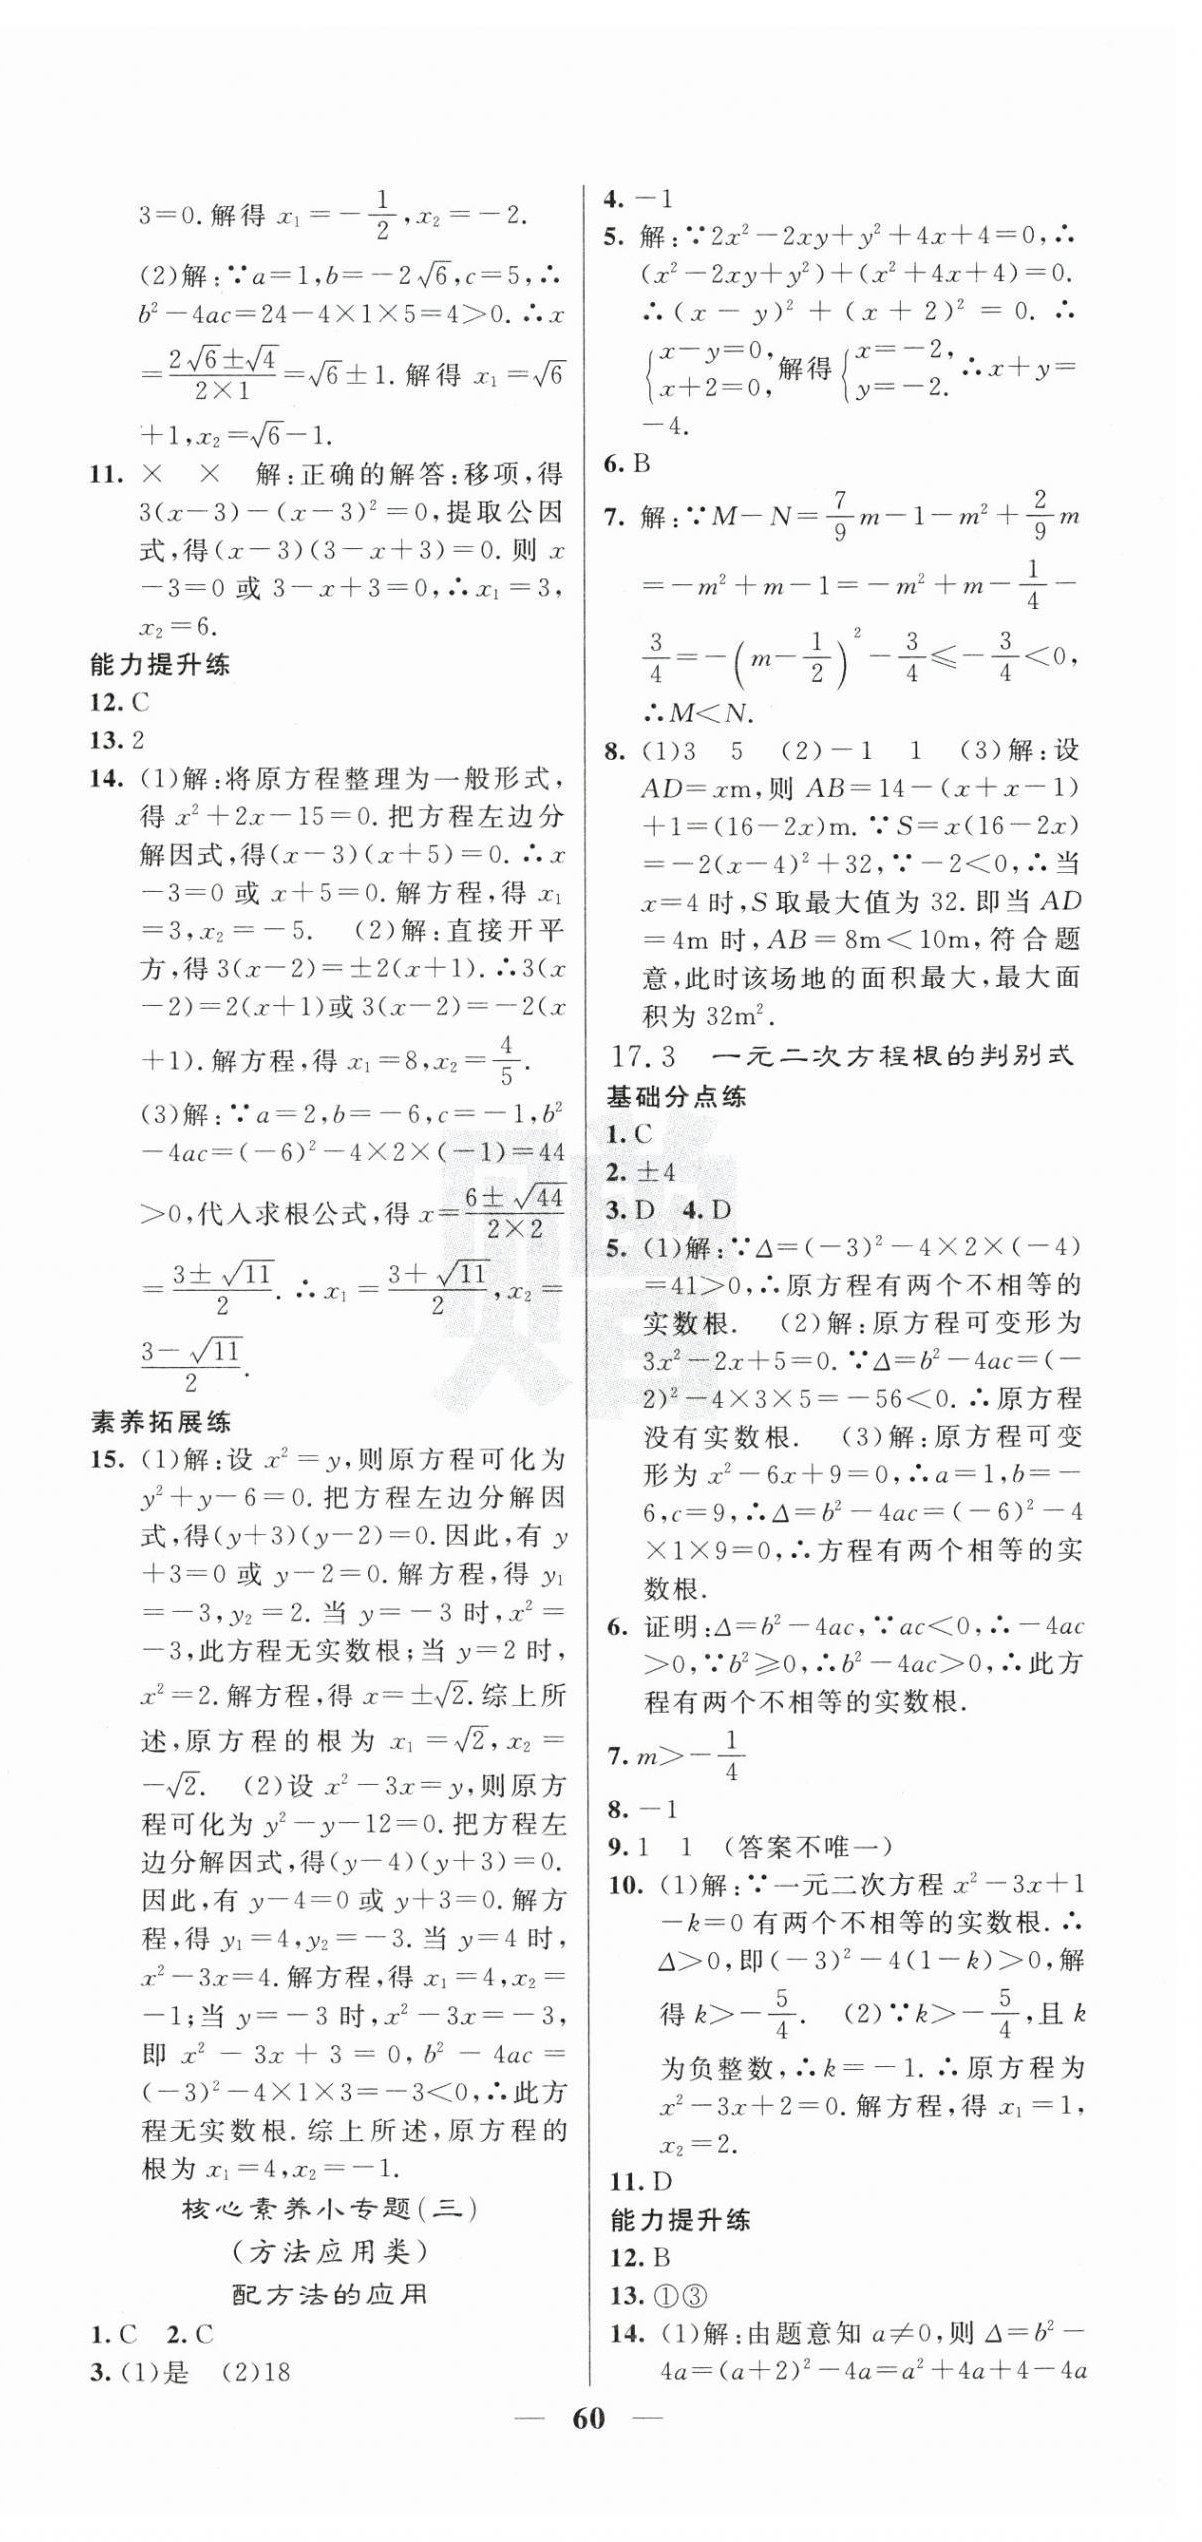 3=0.解得 x₁=-1/2,x₂=-2.
(2)解:∵a=1,b=-2√6,c=5,∴
b²-4ac=24-4×1×5=4>0.∴x
=(2√6±√4)/(2×1)=√6±1.解得 x₁=√6
+1,x₂=√6-1.
11. × × 解:正确的解答:移项,得
3(x-3)-(x-3)²=0,提取公因
式,得(x-3)(3-x+3)=0.则 x
-3=0 或 3-x+3=0,∴x₁=3,
x₂=6.
能力提升练
12. C
13. 2
14. (1)解:将原方程整理为一般形式,
得 x²+2x-15=0.把方程左边分
解因式,得(x-3)(x+5)=0.∴x
-3=0 或 x+5=0.解方程,得 x₁
=3,x₂=-5. (2)解:直接开平
方,得 3(x-2)=±2(x+1).∴3(x
-2)=2(x+1)或 3(x-2)=-2(x
+1).解方程,得 x₁=8,x₂=4/5.
(3)解:∵a=2,b=-6,c=-1,b²
-4ac=(-6)²-4×2×(-1)=44
>0,代入求根公式,得 x=(6±√44)/(2×2)
=(3±√11)/2.∴x₁=(3+√11)/2,x₂=
(3-√11)/2.
素养拓展练
15. (1)解:设 x²=y,则原方程可化为
y²+y-6=0.把方程左边分解因
式,得(y+3)(y-2)=0.因此,有 y
+3=0 或 y-2=0.解方程,得 y₁
=-3,y₂=2.当 y=-3 时,x²=
-3,此方程无实数根;当 y=2 时,
x²=2.解方程,得 x=±√2.综上所
述,原方程的根为 x₁=√2,x₂=
-√2. (2)设 x²-3x=y,则原方
程可化为 y²-y-12=0.把方程左
边分解因式,得(y-4)(y+3)=0.
因此,有 y-4=0 或 y+3=0.解方
程,得 y₁=4,y₂=-3.当 y=4 时,
x²-3x=4.解方程,得 x₁=4,x₂=
-1;当 y=-3 时,x²-3x=-3,
即 x²-3x+3=0,b²-4ac=
(-3)²-4×1×3=-3<0,∴此方
程无实数根.综上所述,原方程的
根为 x₁=4,x₂=-1.
核心素养小专题(三)
(方法应用类)
配方法的应用
1. C 2. C
3. (1)是 (2)18
4. -1
5. 解:∵2x²-2xy+y²+4x+4=0,∴
(x²-2xy+y²)+(x²+4x+4)=0.
∴(x-y)²+(x+2)²=0.∴
{x-y=0, x+2=0, 解得 {x=-2, y=-2. ∴x+y=
-4.
6. B
7. 解:∵M-N=7/9m-1-m²+2/9m
=-m²+m-1=-m²+m-1/4-
3/4=-(m-1/2)²-3/4≤-3/4<0,
∴M<N.
8. (1)3 5 (2)-1 1 (3)解:设
AD=xm,则 AB=14-(x+x-1)
+1=(16-2x)m.∵S=x(16-2x)
=-2(x-4)²+32,∵-2<0,∴当
x=4 时,S 取最大值为 32.即当 AD
=4m 时,AB=8m<10m,符合题
意,此时该场地的面积最大,最大面
积为 32m².
17.3 一元二次方程根的判别式
基础分点练
1. C
2. ±4
3. D 4. D
5. (1)解:∵Δ=(-3)²-4×2×(-4)
=41>0,∴原方程有两个不相等的
实数根. (2)解:原方程可变形为
3x²-2x+5=0.∵Δ=b²-4ac=(-
2)²-4×3×5=-56<0.∴原方程
没有实数根. (3)解:原方程可变
形为 x²-6x+9=0,∴a=1,b=-
6,c=9,∴Δ=b²-4ac=(-6)²-4
×1×9=0,∴方程有两个相等的实
数根.
6. 证明:Δ=b²-4ac,∵ac<0,∴-4ac
>0,∵b²≥0,∴b²-4ac>0,∴此方
程有两个不相等的实数根.
7. m>-1/4
8. -1
9. 1 1 (答案不唯一)
10. (1)解:∵一元二次方程 x²-3x+1
-k=0 有两个不相等的实数根.∴
Δ>0,即(-3)²-4(1-k)>0,解
得 k>-5/4. (2)∵k>-5/4,且 k
为负整数,∴k=-1.∴原方程为
x²-3x+2=0.解方程,得 x₁=1,
x₂=2.
11. D
能力提升练
12. B
13. ①③
14. (1)解:由题意知 a≠0,则 Δ=b²-
4a=(a+2)²-4a=a²+4a+4-4a
— 60 —